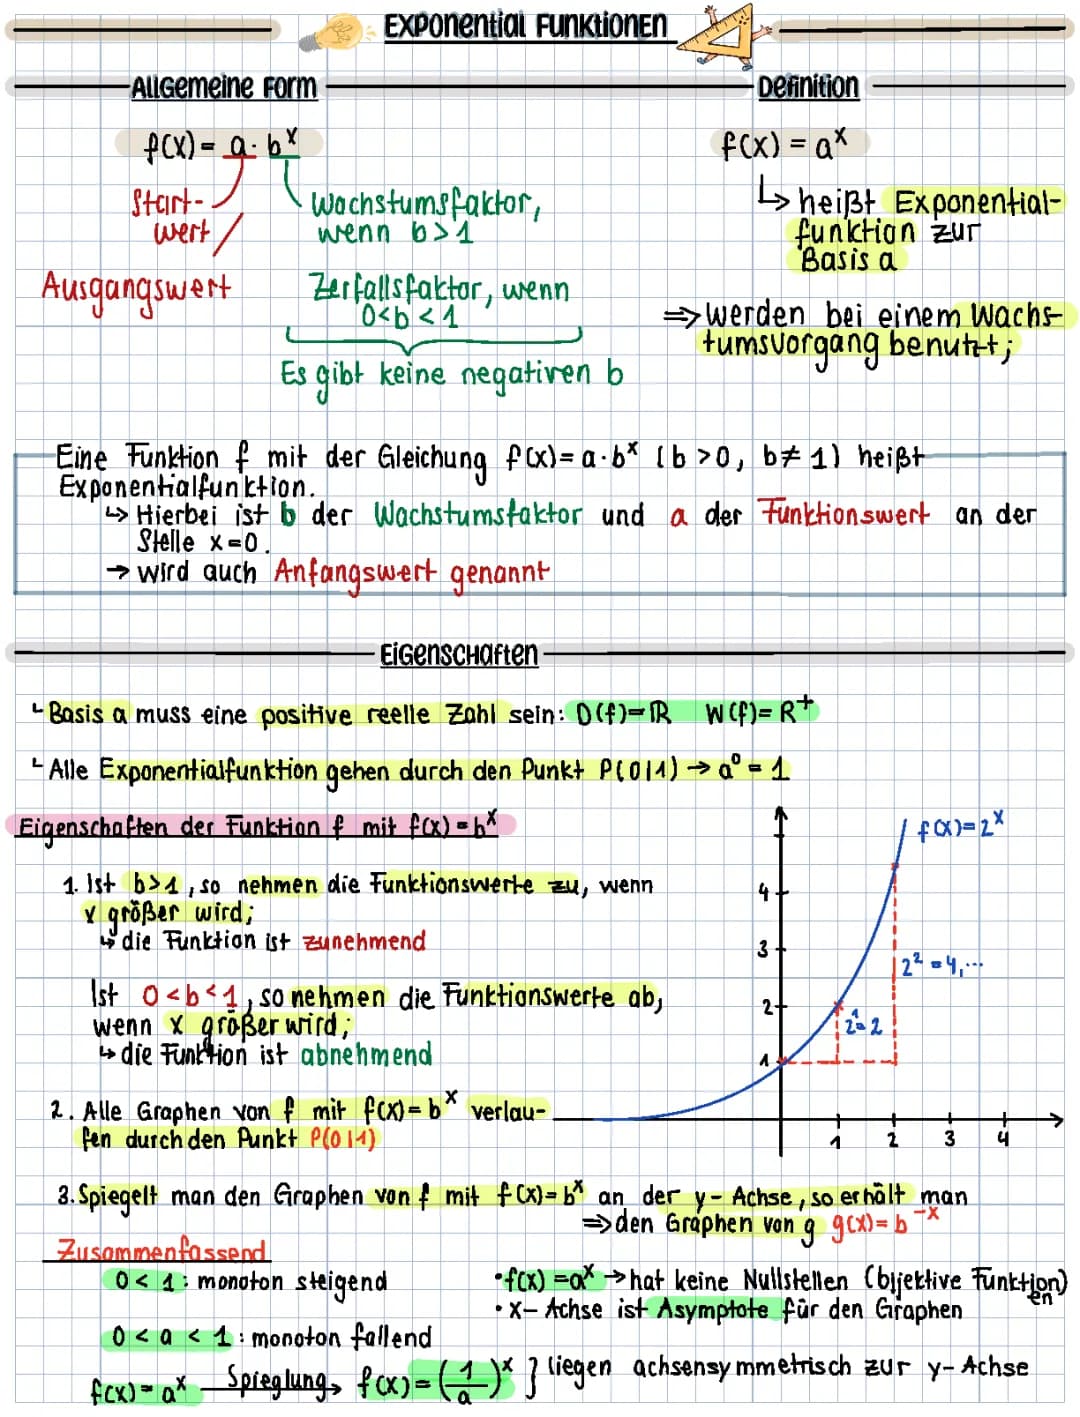 Exponential Funktionen
Allgemeine Form
Definition
f(x) = a · b^x
Start-
wert
Ausgangswert
Wachstumsfaktor,
wenn b > 1
Zerfallsfaktor, wenn
0<b < 1
Es gibt keine negativen b
f(x) = a^x
↳ heißt Exponential-
funktion zur
Basis a
⇒ werden bei einem Wachs-
tumsvorgang benutzt;
Eine Funktion f mit der Gleichung f(x) = a · b^x (b >0, b≠ 1) heißt
Exponentialfunktion.
↳ Hierbei ist b der Wachstumsfaktor und a der Funktionswert an der
Stelle x=0.
→ wird auch Anfangswert genannt
Eigenschaften
└ Basis a muss eine positive reelle Zahl sein: D(f)=ℝ W(f)= R^+
└ Alle Exponentialfunktion gehen durch den Punkt P(0|1) → a^0 = 1
Eigenschaften der Funktion f mit f(x) = b^x
1. Ist b>1, so nehmen die Funktionswerte zu, wenn
x größer wird;
↳ die Funktion ist zunehmend
Ist 0<b<1, so nehmen die Funktionswerte ab,
wenn x größer wird;
↳ die Funktion ist abnehmend
2. Alle Graphen von f mit f(x) = b^x verlau-
fen durch den Punkt P(0|1)
f(x)=2^x
4
3
2
1
2^2 = 4,...
2^1 = 2
1 2 3 4
3. Spiegelt man den Graphen von f mit f(x)= b^x an der y- Achse, so erhält man
⇒ den Graphen von g g(x) = b^-x
Zusammenfassend
0 < 1: monoton steigend
0 < a < 1: monoton fallend
• f(x) = a^x → hat keine Nullstellen (bijektive Funktion)
en
• x- Achse ist Asymptote für den Graphen
f(x) = a^x Spieglung → f(x) = (1/a)^x } liegen achsensymmetrisch zur y- Achse